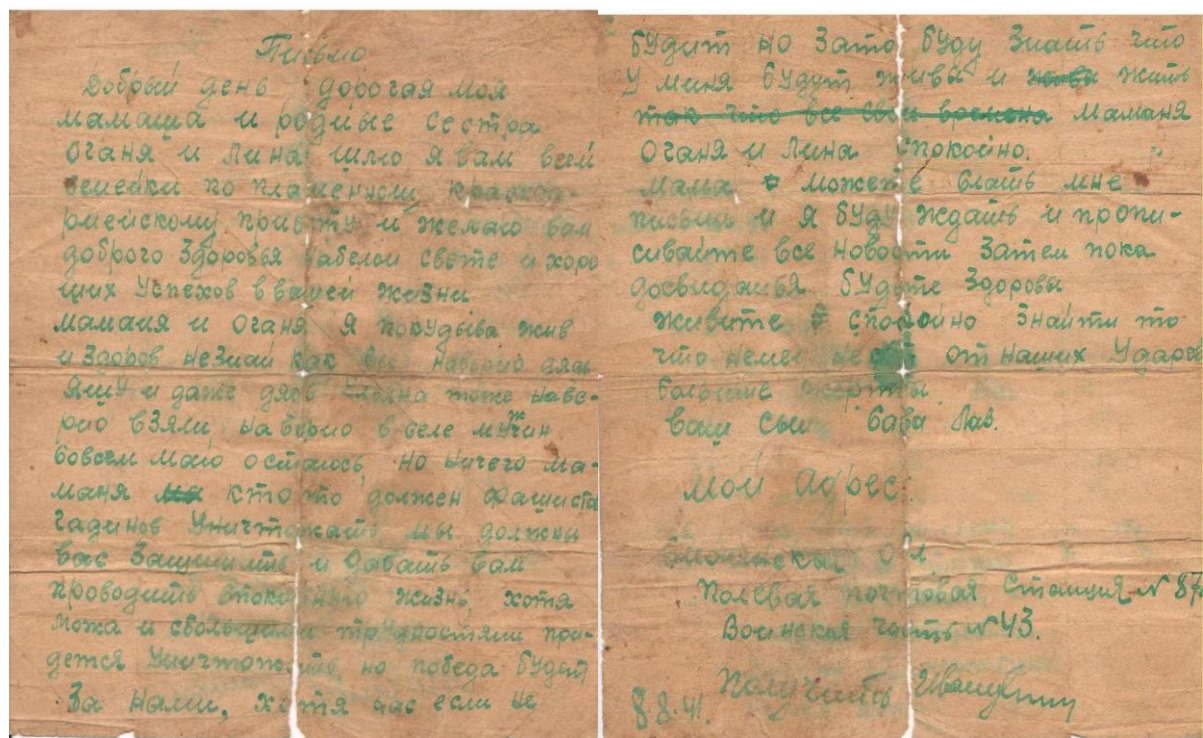 Письмо
Добрый день дорогая моя
мамаша и родные сестра
Оганя и Лина шлю я вам всей
семейки по пламенному красноа
рмейскому привету и желаю вам
доброго здоровья набелом свете и хоро
ших успехов в вашей жизни
маманя и Оганя я покудыва жив
и здоров незнаю как все наверно дядю
Яшу и даже дядю тоже наве-
рно взяли наверно в селе мужчин
вовсем мало осталось, но ничего ма-
маня кто то должен фашиста
гадинов уничтожать мы должны
вас защищать и давать вам
проводить спокойную жизнь, хотя
можа и сбольшими трудностями при-
детса уничтожать но победа будет
За нами, хотя нас если не
будит но зато буду знать что
у миня будут живы и жить
так что все свои времена маманя
Оганя и Лина спокойно.
мама можете слать мне
письма и я буду ждать и пропи-
сывайте все новости Затем пока
досвиданья будьте здоровы
живите спокойно знайти то
что немец несет от наших ударов
большие жертвы
ваш сын Вава Пав.
Мой адрес:
Смоленская обл.
Полевая почтовая станция № 87
Воинская часть № 43.
Получить
8.8.41.